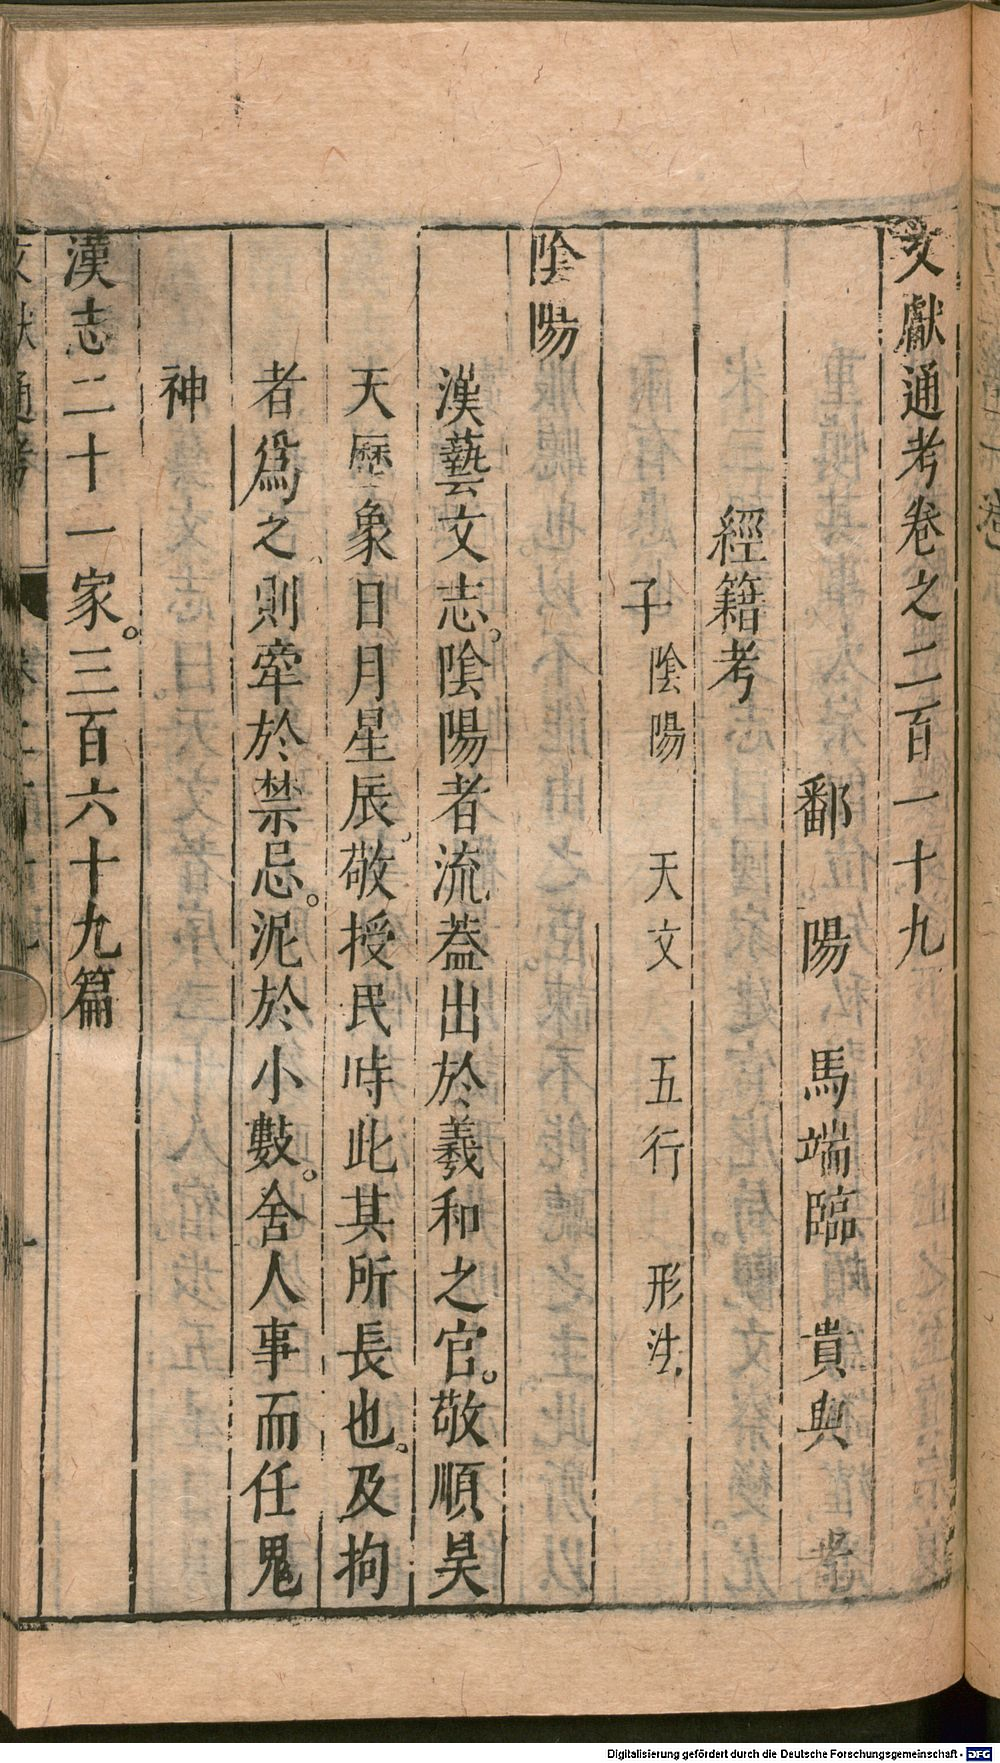 文獻通考卷之二百一十九
鄱陽馬端臨貴與著
經籍考
子 陰陽 天文 五行 形法
陰陽
漢藝文志。陰陽者流蓋出於羲和之官。敬順昊
天歷象日月星辰。敬授民時此其所長也。及拘
者爲之則牽於禁忌。泥於小數。舍人事而任鬼
神
漢志二十一家。三百六十九篇
Digitalisierung gefördert durch die Deutsche Forschungsgemeinschaft - DFG